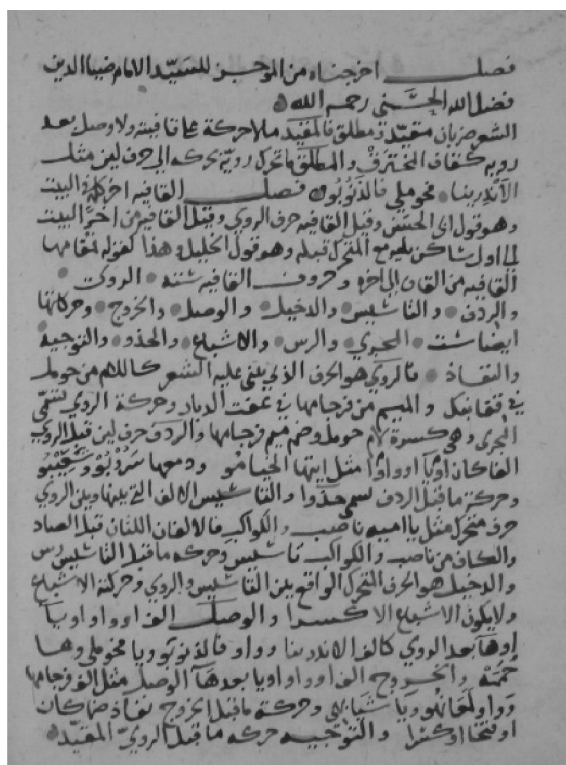 فصل اخرجناه من الموجز للسيد الامام ضيا الدين
فضل الله الحسني رحمه الله
الشعر ضربان مقيد ومطلق فالمقيد ما لا حركة على قافيته ولا وصل بعد
رويه كقاف المخترق والمطلق ما تحرك رويه بحركة الى حرف لين مثل
الاندرينا فحوملي فالذنوبو فصل القافيه اخر كلمة في البيت
وهو قول ابي الحسن وقيل القافيه حرف الروي وقيل القافيه من اخر البيت
الى اول ساكن يليه مع المتحرك قبله وهو قول الخليل وهذا كقوله فمقامها
القافيه من القاف الى اخره وحروف القافيه ستة الروي
والردف والتاسيس والدخيل والوصل والخروج وحركاتها
ايضا ست المجرى والرس والاشباع والحذو والتوجيه
والنفاذ فالروي هو الحرف الذي يبنى عليه الشعر كاللام من حومل
في قفا نبك والميم من فرجامها في عفت الديار وحركة الروي تسمى
المجرى وهي كسرة لام حومل وضم ميم فرجامها والردف حرف لين قبل الروي
الفا كان او يا او واوا مثل ايتها الخيامو ودمعها سروب
وحركة ما قبل الردف تسمى حذوا والتاسيس الالف التي بينها وبين الروي
حرف متحرك مثل يا اميمة ناصب والكواكب فالالفان اللتان قبل الصاد
والكاف من ناصب والكواكب تاسيس وحركة ما قبل التاسيس رس
والدخيل هو الحرف المتحرك الواقع بين التاسيس والروي وحركته الاشباع
ولا يكون الاشباع الا كسرا والوصل الف او واو او يا
او ها بعد الروي كالف الاندرينا وواو فالذنوبو ويا فحوملي وها
والخروج الف او واو او يا بعد ها الوصل مثل الف فرجامها
وواو ويا وحركة ما قبل الخروج نفاذ ضما كان
او فتحا او كسرا والتوجيه حركة ما قبل الروي المقيد